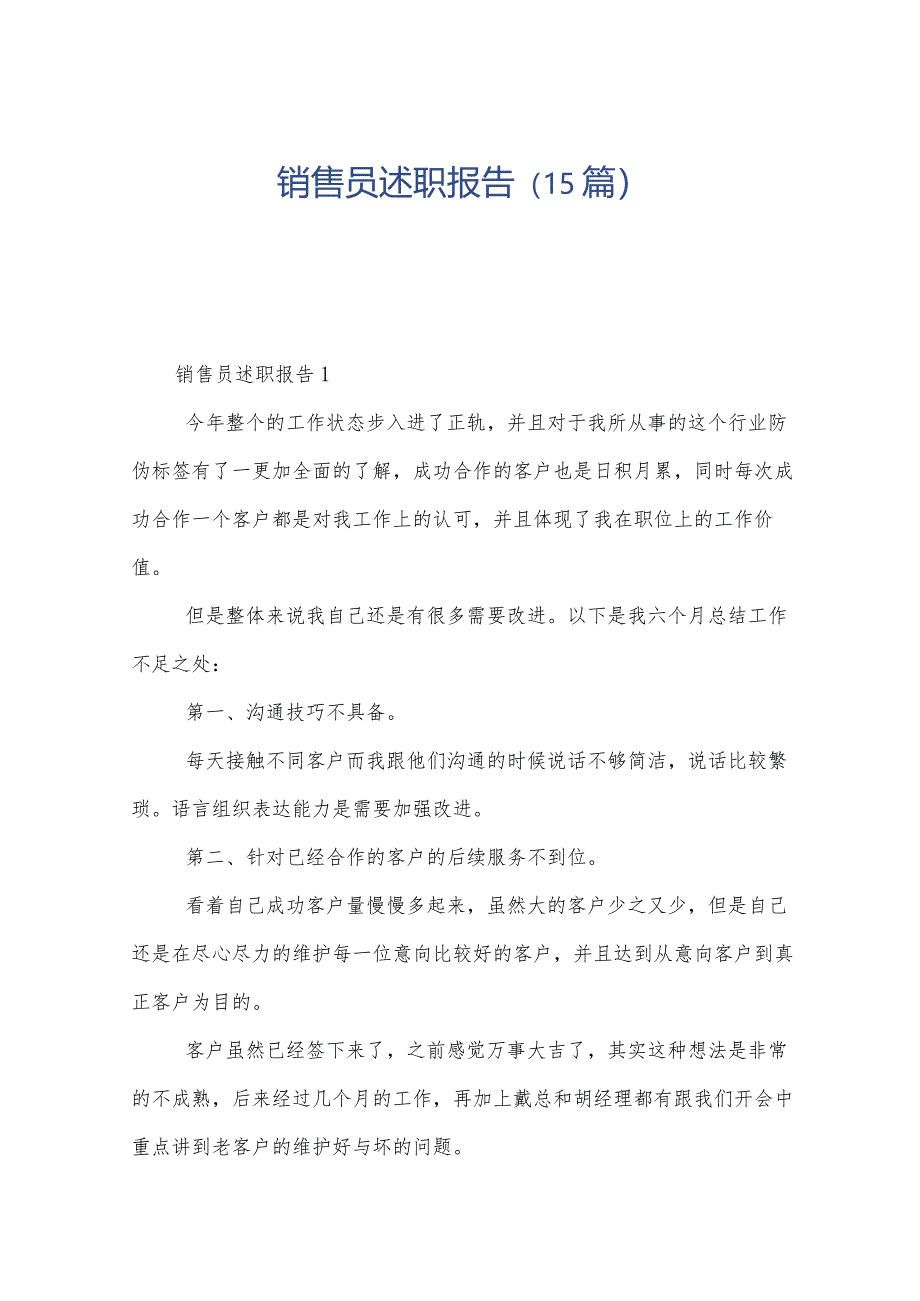 销售员述职报告（15 篇）
销售员述职报告 1
今年整个的工作状态步入进了正轨，并且对于我所从事的这个行业防
伪标签有了一更加全面的了解，成功合作的客户也是日积月累，同时每次成
功合作一个客户都是对我工作上的认可，并且体现了我在职位上的工作价
值。
但是整体来说我自己还是有很多需要改进。以下是我六个月总结工作
不足之处：
第一、沟通技巧不具备。
每天接触不同客户而我跟他们沟通的时候说话不够简洁，说话比较繁
琐。语言组织表达能力是需要加强改进。
第二、针对已经合作的客户的后续服务不到位。
看着自己成功客户量慢慢多起来，虽然大的客户少之又少，但是自己
还是在尽心尽力的维护每一位意向比较好的客户，并且达到从意向客户到真
正客户为目的。
客户虽然已经签下来了，之前感觉万事大吉了，其实这种想法是非常
的不成熟，后来经过几个月的工作，再加上戴总和胡经理都有跟我们开会中
重点讲到老客户的维护好与坏的问题。